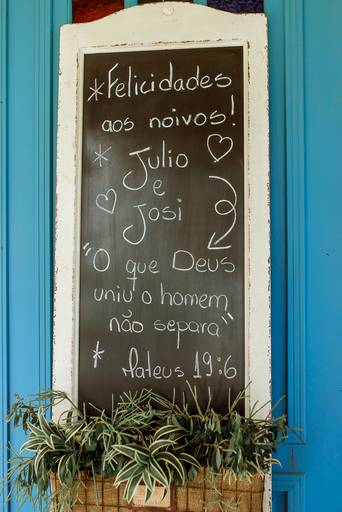 *Felicidades
aos noivos!
* Julio
e
Josi
"O que Deus
uniu o homem
não separa"
* Mateus 19:6